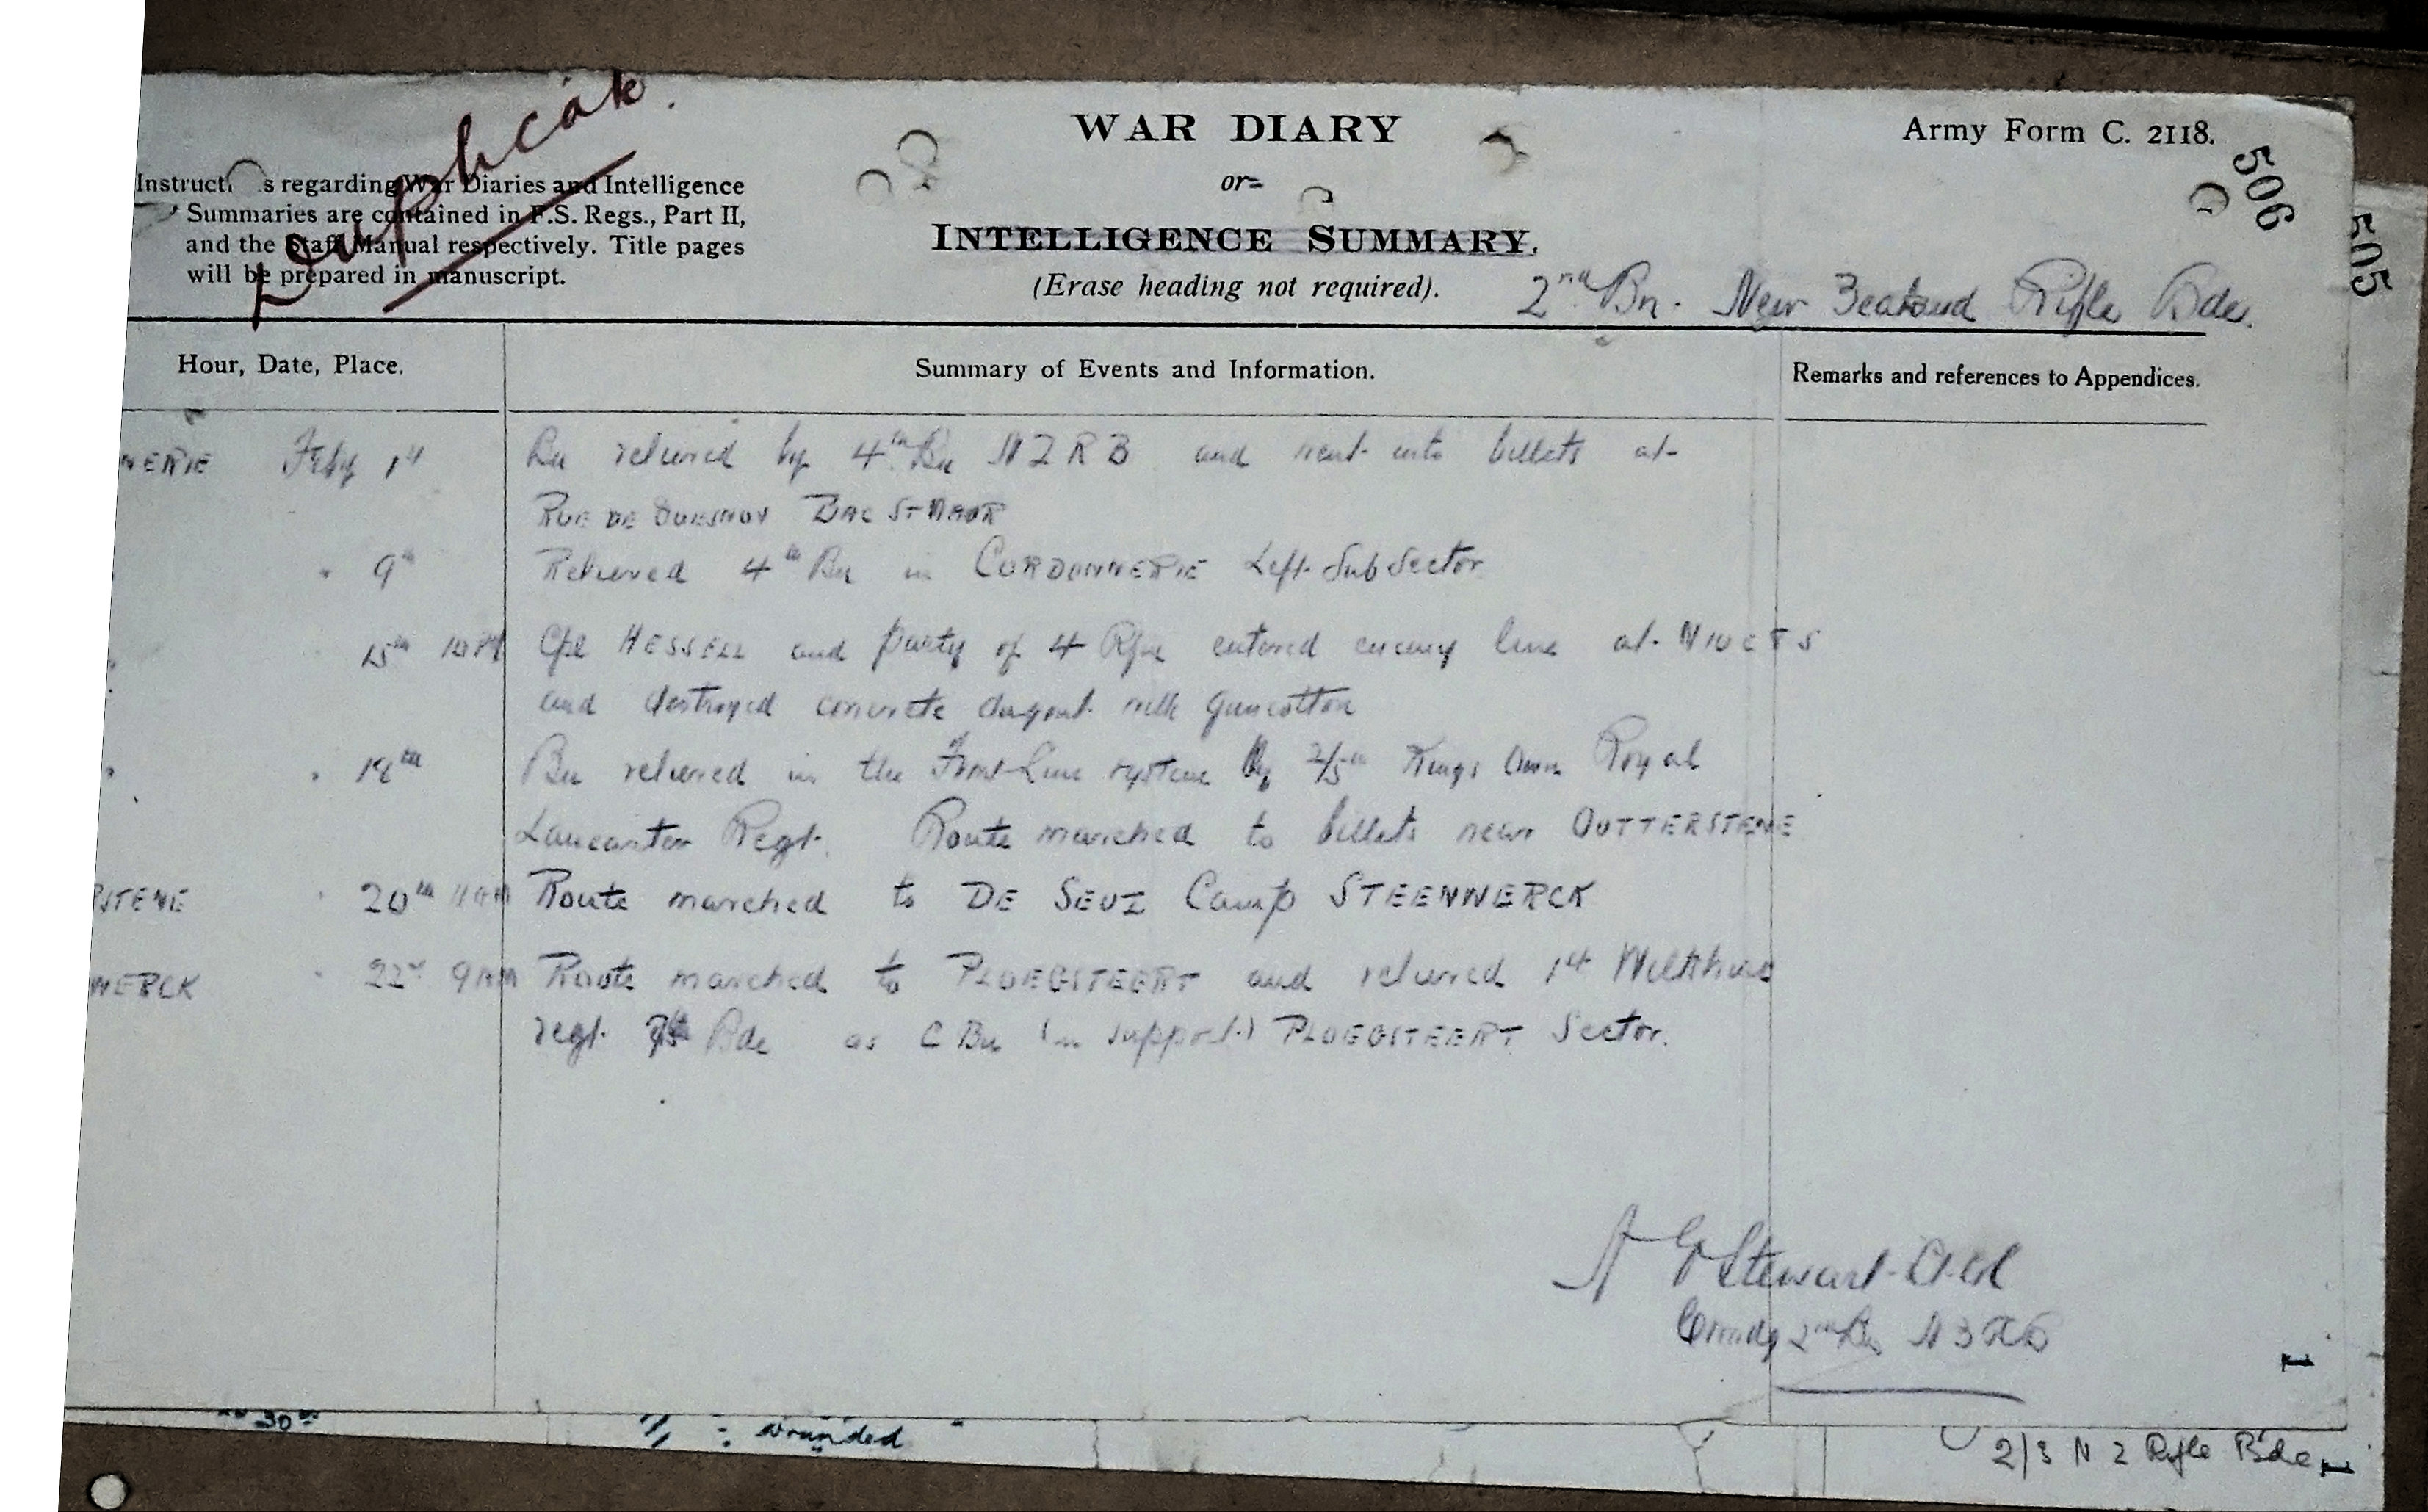 Duplicate.
WAR DIARY
or
INTELLIGENCE SUMMARY.
(Erase heading not required).
Army Form C. 2118.
506
505
Instruct s regarding War Diaries and Intelligence
Summaries are contained in F.S. Regs., Part II,
and the Staff Manual respectively. Title pages
will be prepared in manuscript.
2nd Bn. New Zealand Rifle Bde.
Hour, Date, Place. Summary of Events and Information. Remarks and references to Appendices.
NERIE Feby 1st Bn relieved by 4th Bn NZRB and went into billets at
RUE DE QUESNOY BAC ST MAUR
" 9th Relieved 4th Bn in CORDONNERIE Left Sub Sector
15th Cpl HESSELL and party of 4 Rfn entered enemy line at
and destroyed concrete dugout with guncotton
" 18th Bn relieved in the Front Line system by 2/5th Kings Own Royal
Lancaster Regt. Route marched to billets near OUTTERSTENE
RSTENE " 20th 11AM Route marched to DE SEUI Camp STEENWERCK
WERCK " 22nd 9AM Route marched to PLOEGSTEERT and relieved 1st Wiltshire
regt Bde as C Bn (in support) PLOEGSTEERT Sector.
Stewart
Cmdg 2nd Bn NZRB
30th
wounded
2/3 N Z Rifle Bde